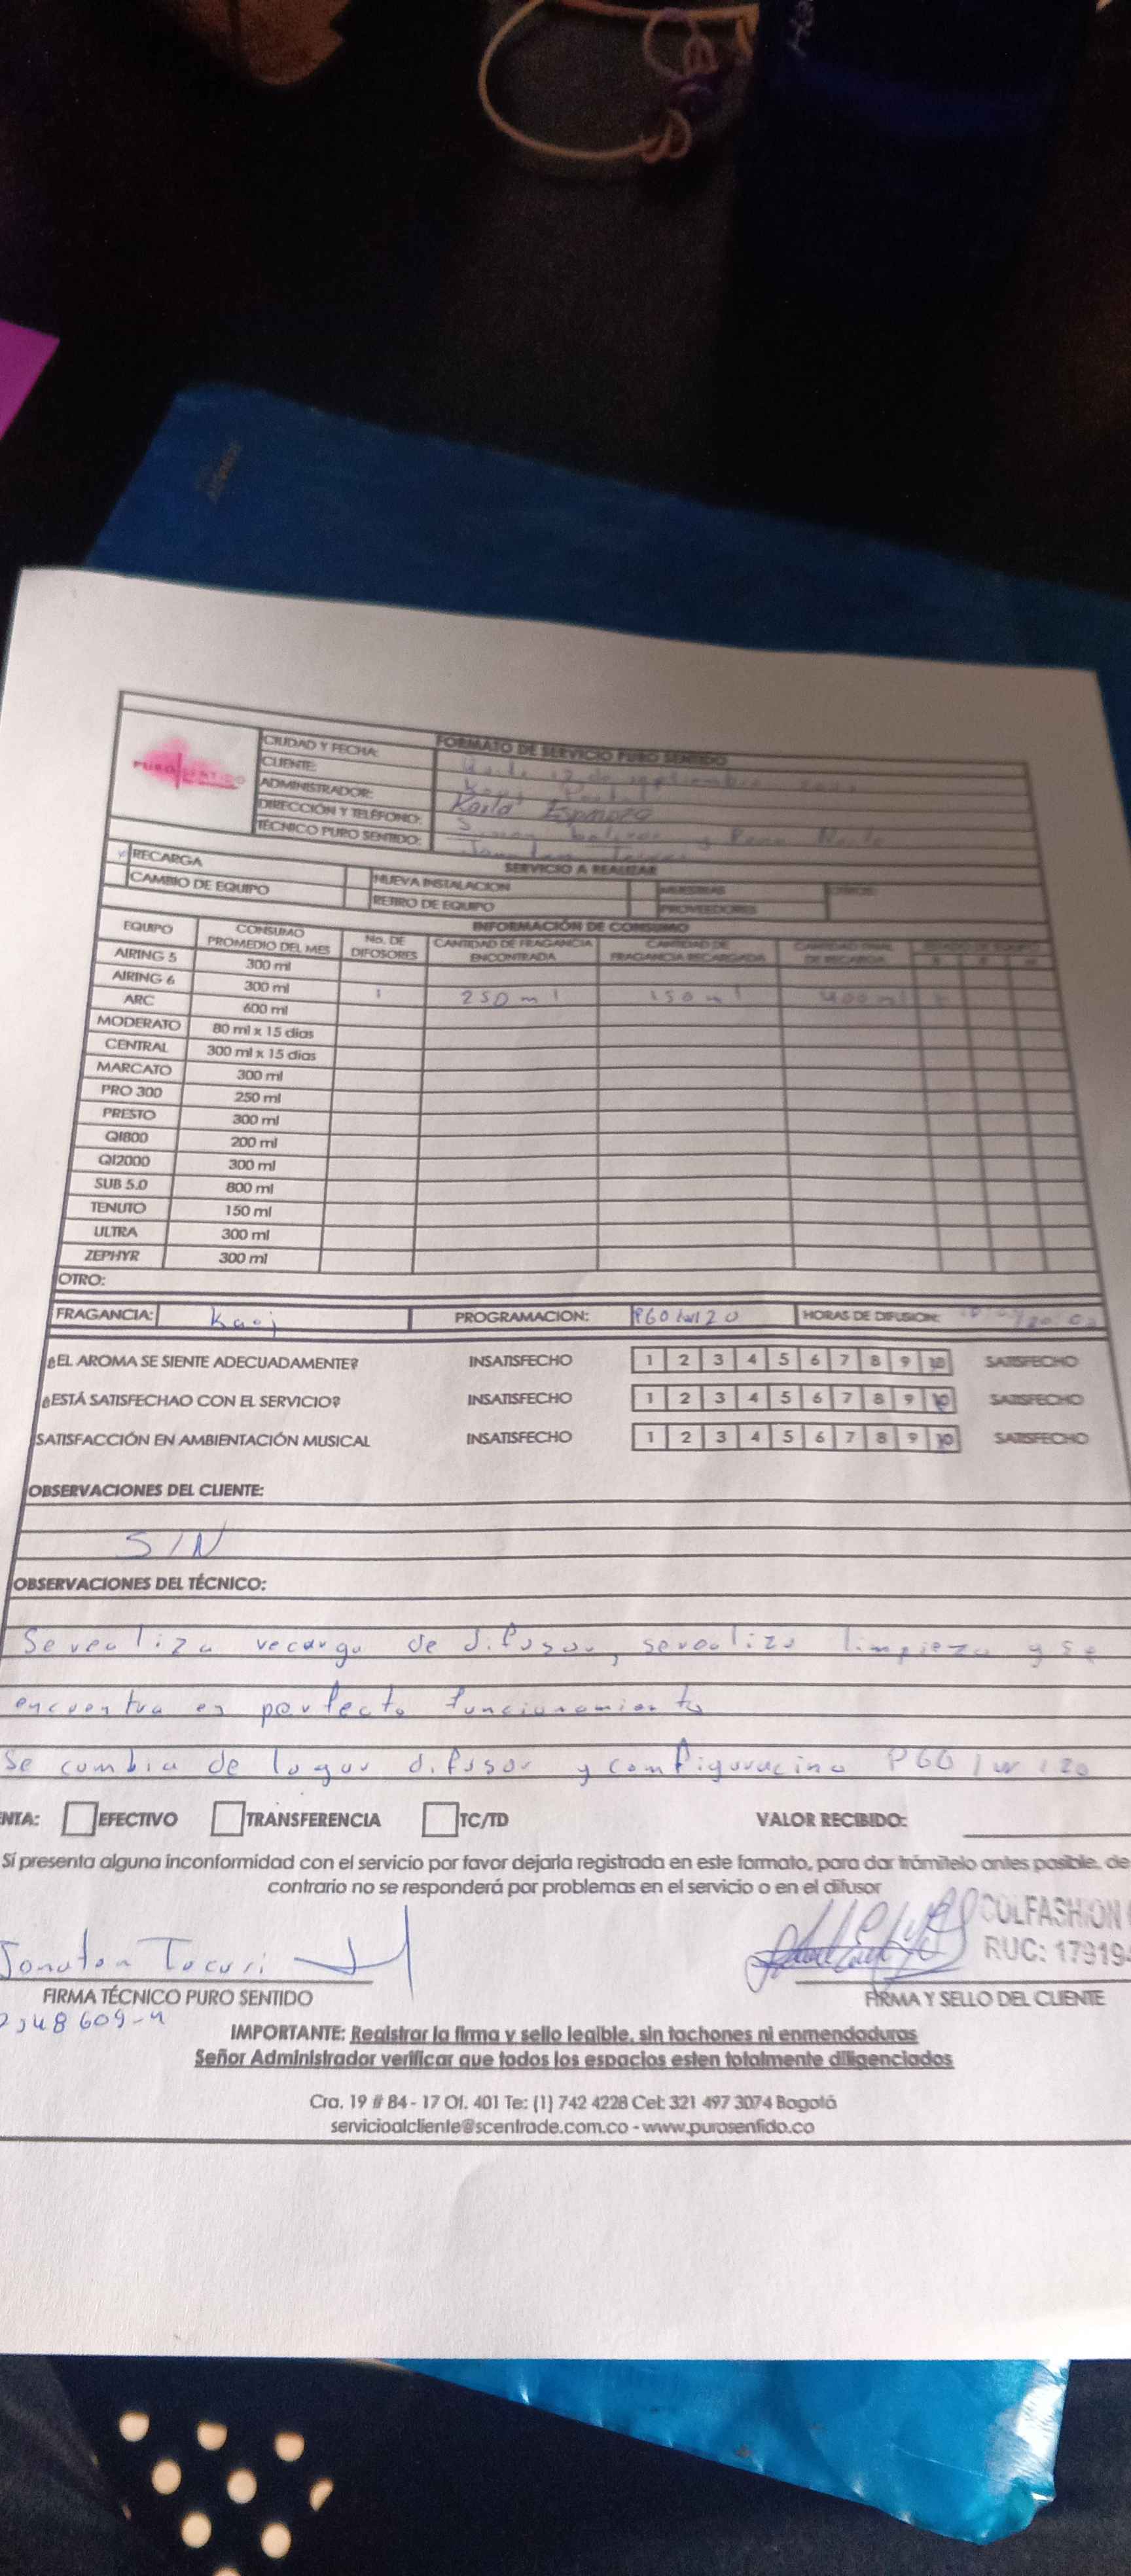 FORMATO DE SERVICIO PURO SENTIDO
PURO SENTIDO
CIUDAD Y FECHA:
CLIENTE:
ADMINISTRADOR: Karla Espinoza
DIRECCIÓN Y TELÉFONO:
TÉCNICO PURO SENTIDO:
SERVICIO A REALIZAR
RECARGA NUEVA INSTALACION MUESTRAS OTROS
CAMBIO DE EQUIPO RETIRO DE EQUIPO PROVEEDORES
INFORMACIÓN DE CONSUMO
EQUIPO CONSUMO PROMEDIO DEL MES No. DE DIFOSORES CANTIDAD DE FRAGANCIA ENCONTRADA CANTIDAD DE FRAGANCIA RECARGADA CANTIDAD FINAL DE RECARGA
AIRING 5 300 ml
AIRING 6 300 ml 1 250 ml 150 ml 400 ml
ARC 600 ml
MODERATO 80 ml x 15 dias
CENTRAL 300 ml x 15 dias
MARCATO 300 ml
PRO 300 250 ml
PRESTO 300 ml
QI800 200 ml
QI2000 300 ml
SUB 5.0 800 ml
TENUTO 150 ml
ULTRA 300 ml
ZEPHYR 300 ml
OTRO:
FRAGANCIA: PROGRAMACION: P60/w120 HORAS DE DIFUSION:
¿EL AROMA SE SIENTE ADECUADAMENTE? INSATISFECHO 1 2 3 4 5 6 7 8 9 10 SATISFECHO
¿ESTÁ SATISFECHAO CON EL SERVICIO? INSATISFECHO 1 2 3 4 5 6 7 8 9 10 SATISFECHO
SATISFACCIÓN EN AMBIENTACIÓN MUSICAL INSATISFECHO 1 2 3 4 5 6 7 8 9 10 SATISFECHO
OBSERVACIONES DEL CLIENTE:
SIN
OBSERVACIONES DEL TÉCNICO:
Se realiza recarga de difusor, se realiza limpieza y se
encuentra en perfecto funcionamiento
Se cambia de lugar difusor y configuracino P60/w120
NTA: EFECTIVO TRANSFERENCIA TC/TD VALOR RECIBIDO:
Sí presenta alguna inconformidad con el servicio por favor dejarla registrada en este formato, para dar trámitelo antes posible, de
contrario no se responderá por problemas en el servicio o en el difusor
COLFASHION
RUC: 17919
Jonatan Tacuri
FIRMA TÉCNICO PURO SENTIDO FIRMA Y SELLO DEL CLIENTE
IMPORTANTE: Registrar la firma y sello legible, sin tachones ni enmendaduras
Señor Administrador verificar que todos los espacios esten totalmente diligenciados
Cra. 19 # 84 - 17 Of. 401 Te: (1) 742 4228 Cel: 321 497 3074 Bogotá
servicioalcliente@scentrade.com.co - www.purosentido.co